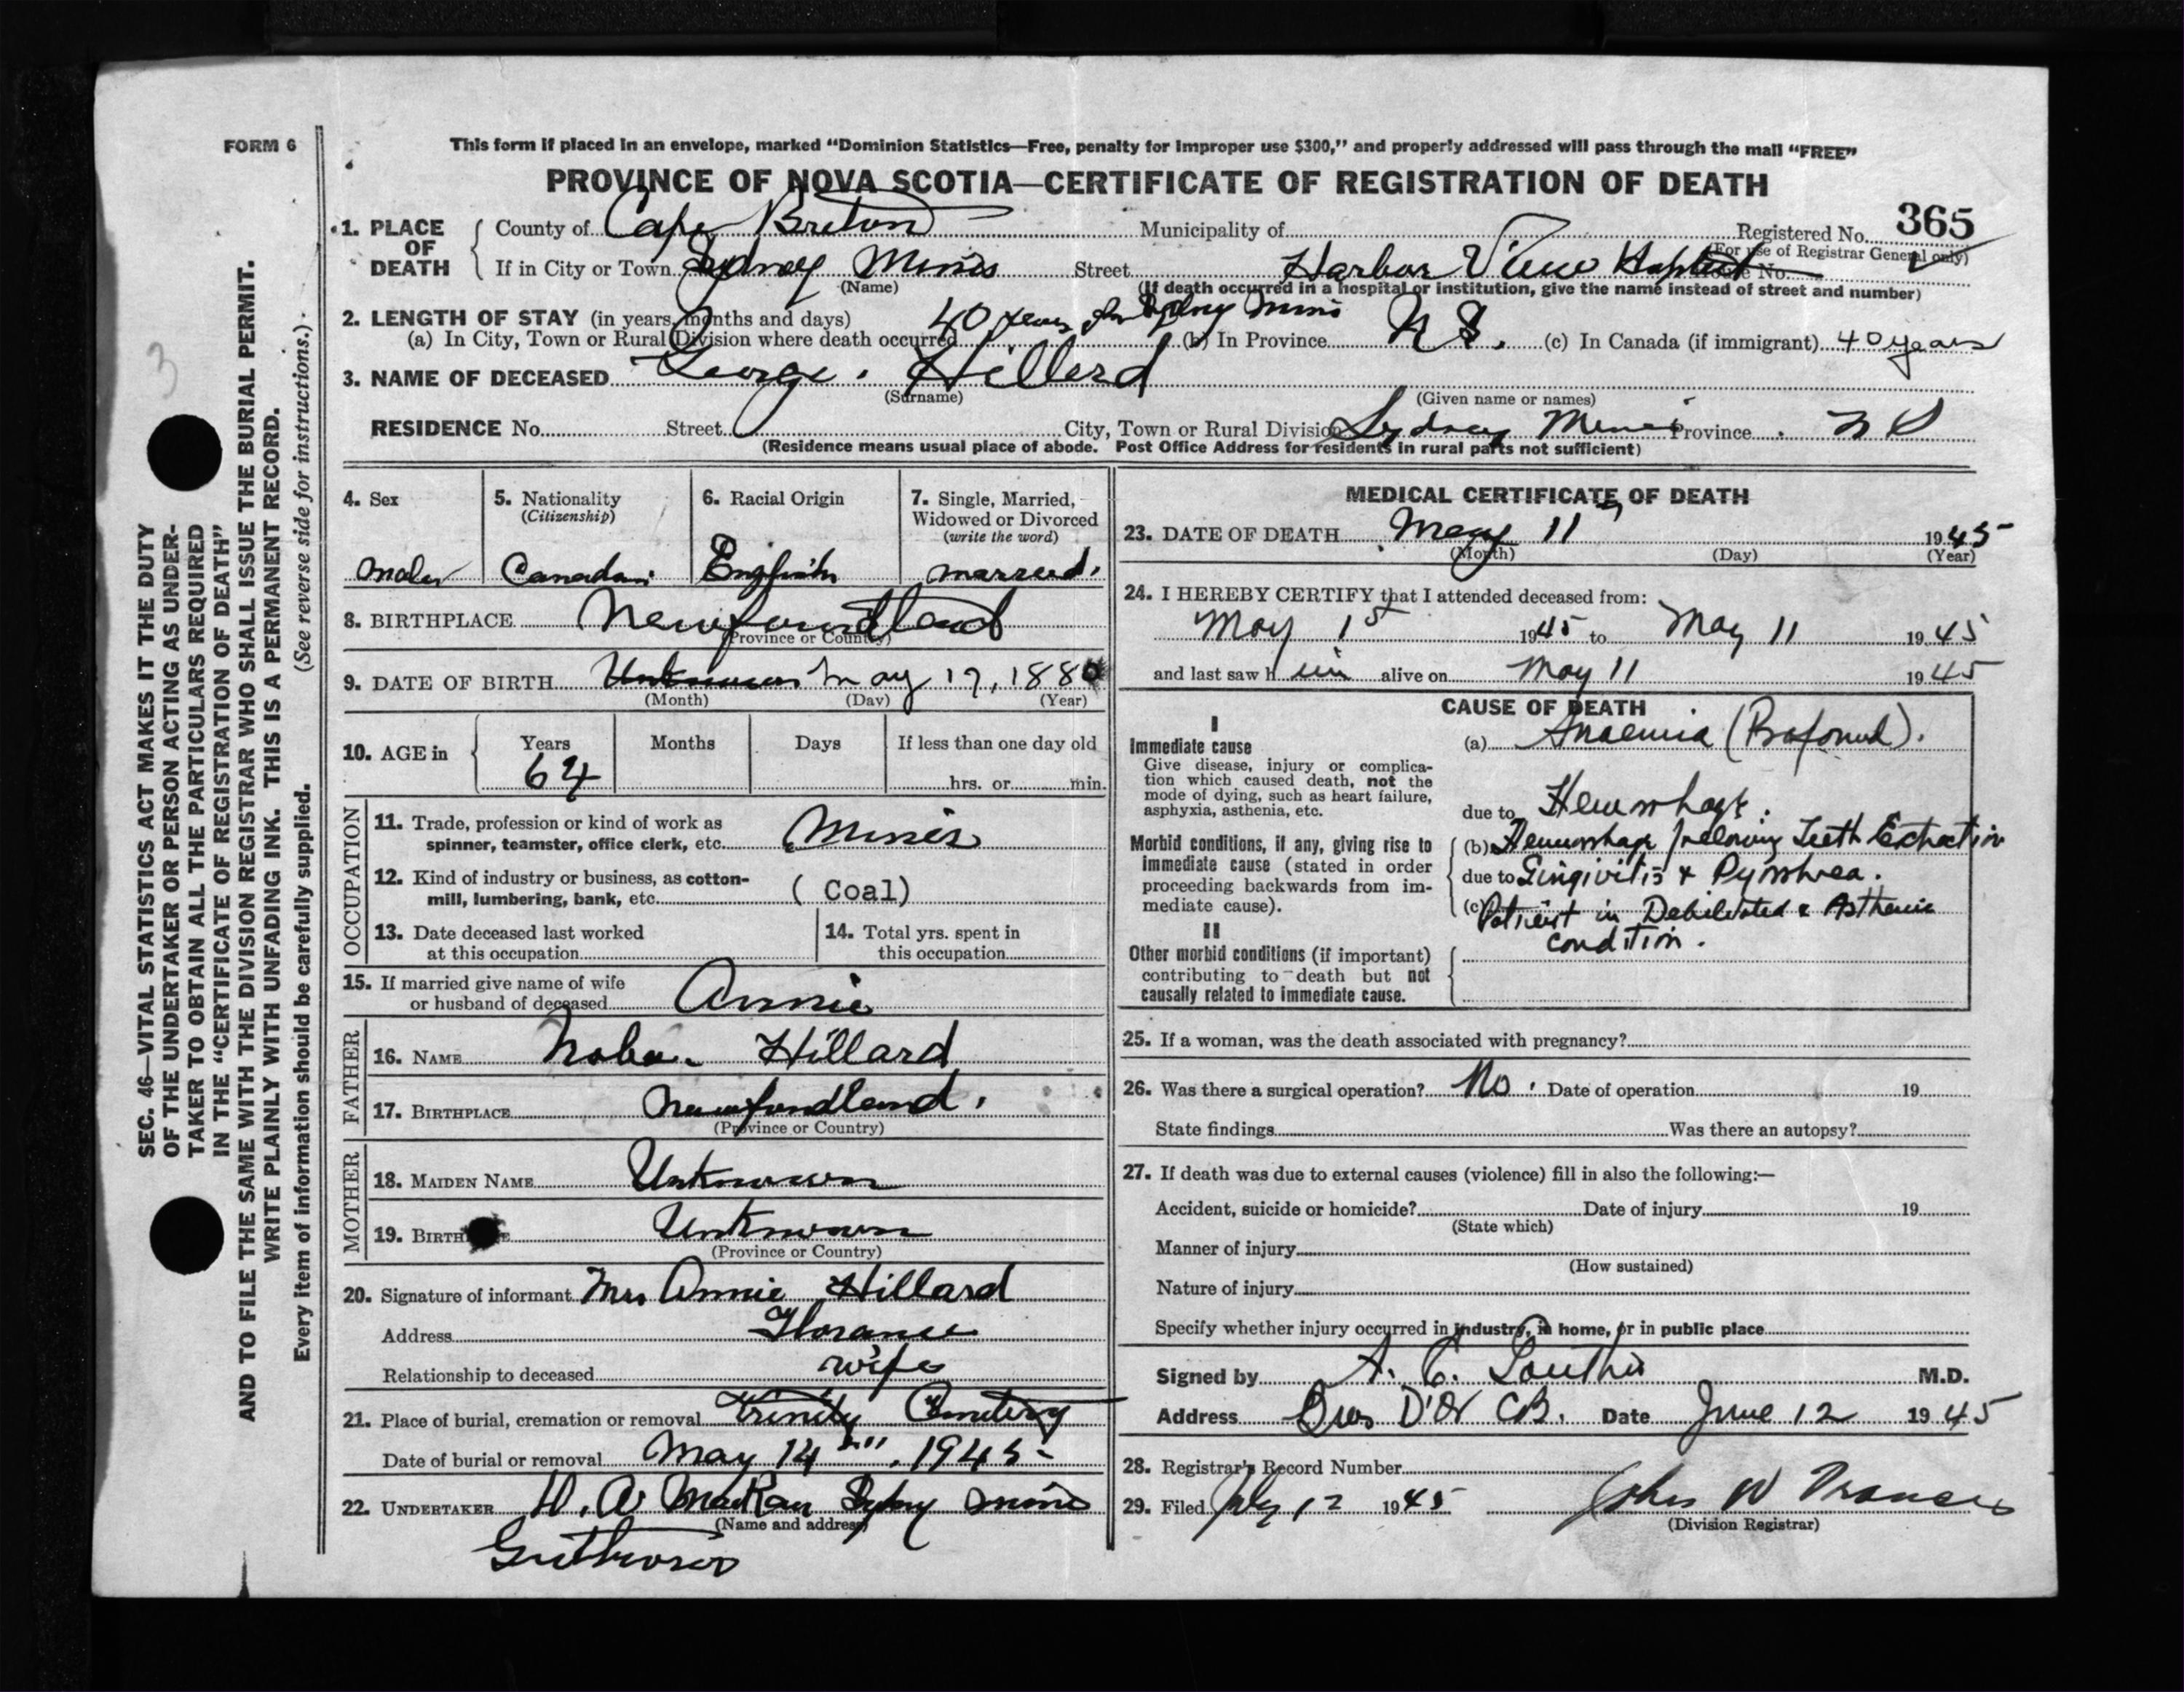 FORM 6
This form if placed in an envelope, marked "Dominion Statistics—Free, penalty for improper use $300," and properly addressed will pass through the mail "FREE"
PROVINCE OF NOVA SCOTIA—CERTIFICATE OF REGISTRATION OF DEATH
1. PLACE OF DEATH
County of Cape Breton Municipality of Registered No. 365
(For use of Registrar General only)
If in City or Town Sydney Mines Street Harbor View Hospital House No.
(Name)
(If death occurred in a hospital or institution, give the name instead of street and number)
2. LENGTH OF STAY (in years, months and days) 40 years in Sydney Mines
(a) In City, Town or Rural Division where death occurred (b) In Province N S. (c) In Canada (if immigrant) 40 years
3. NAME OF DECEASED George. Hillerd
(Surname) (Given name or names)
RESIDENCE No. Street City, Town or Rural Division Sydney Mines Province N S
(Residence means usual place of abode. Post Office Address for residents in rural parts not sufficient)
4. Sex
Male
5. Nationality
(Citizenship)
Canadian
6. Racial Origin
English
7. Single, Married,
Widowed or Divorced
(write the word)
married.
8. BIRTHPLACE Newfoundland
(Province or Country)
9. DATE OF BIRTH Unknown May 17, 1880
(Month) (Day) (Year)
10. AGE in
Years Months Days If less than one day old
64
hrs. or min.
OCCUPATION
11. Trade, profession or kind of work as
spinner, teamster, office clerk, etc. Miner
12. Kind of industry or business, as cotton-
mill, lumbering, bank, etc. (Coal)
13. Date deceased last worked
at this occupation
14. Total yrs. spent in
this occupation
15. If married give name of wife
or husband of deceased Annie
FATHER
16. NAME Hillard
17. BIRTHPLACE Newfoundland.
(Province or Country)
MOTHER
18. MAIDEN NAME Unknown
19. BIRTH E Unknown
(Province or Country)
20. Signature of informant Mrs Annie Hillard
Address Florance
Relationship to deceased wife
21. Place of burial, cremation or removal Trinity Cemetery
Date of burial or removal May 14th, 1945
22. UNDERTAKER H. A. MacKay Sydney Mines
(Name and address)
MEDICAL CERTIFICATE OF DEATH
23. DATE OF DEATH May 11 1945
(Month) (Day) (Year)
24. I HEREBY CERTIFY that I attended deceased from:
May 1st 1945 to May 11 1945
and last saw him alive on May 11 1945
CAUSE OF DEATH
I
Immediate cause
Give disease, injury or complica-
tion which caused death, not the
mode of dying, such as heart failure,
asphyxia, asthenia, etc.
(a) Anaemia (Profound).
due to Hemorrhage.
Morbid conditions, if any, giving rise to
immediate cause (stated in order
proceeding backwards from im-
mediate cause).
(b) Hemorrhage following Teeth Extraction
due to Gingivitis & Pyorrhea.
(c) Patient in Debilitated & Asthenic
condition.
II
Other morbid conditions (if important)
contributing to death but not
causally related to immediate cause.
25. If a woman, was the death associated with pregnancy?
26. Was there a surgical operation? No. Date of operation 19
State findings Was there an autopsy?
27. If death was due to external causes (violence) fill in also the following:—
Accident, suicide or homicide? Date of injury 19
(State which)
Manner of injury
(How sustained)
Nature of injury
Specify whether injury occurred in industry, in home, or in public place
Signed by A. C. M.D.
Address Bras D'Or CB. Date June 12 1945
28. Registrar's Record Number
29. Filed July 12 1945 John W Francis
(Division Registrar)
SEC. 46—VITAL STATISTICS ACT MAKES IT THE DUTY
OF THE UNDERTAKER OR PERSON ACTING AS UNDER-
TAKER TO OBTAIN ALL THE PARTICULARS REQUIRED
IN THE "CERTIFICATE OF REGISTRATION OF DEATH"
AND TO FILE THE SAME WITH THE DIVISION REGISTRAR WHO SHALL ISSUE THE BURIAL PERMIT.
WRITE PLAINLY WITH UNFADING INK. THIS IS A PERMANENT RECORD.
Every item of information should be carefully supplied. (See reverse side for instructions.)
3